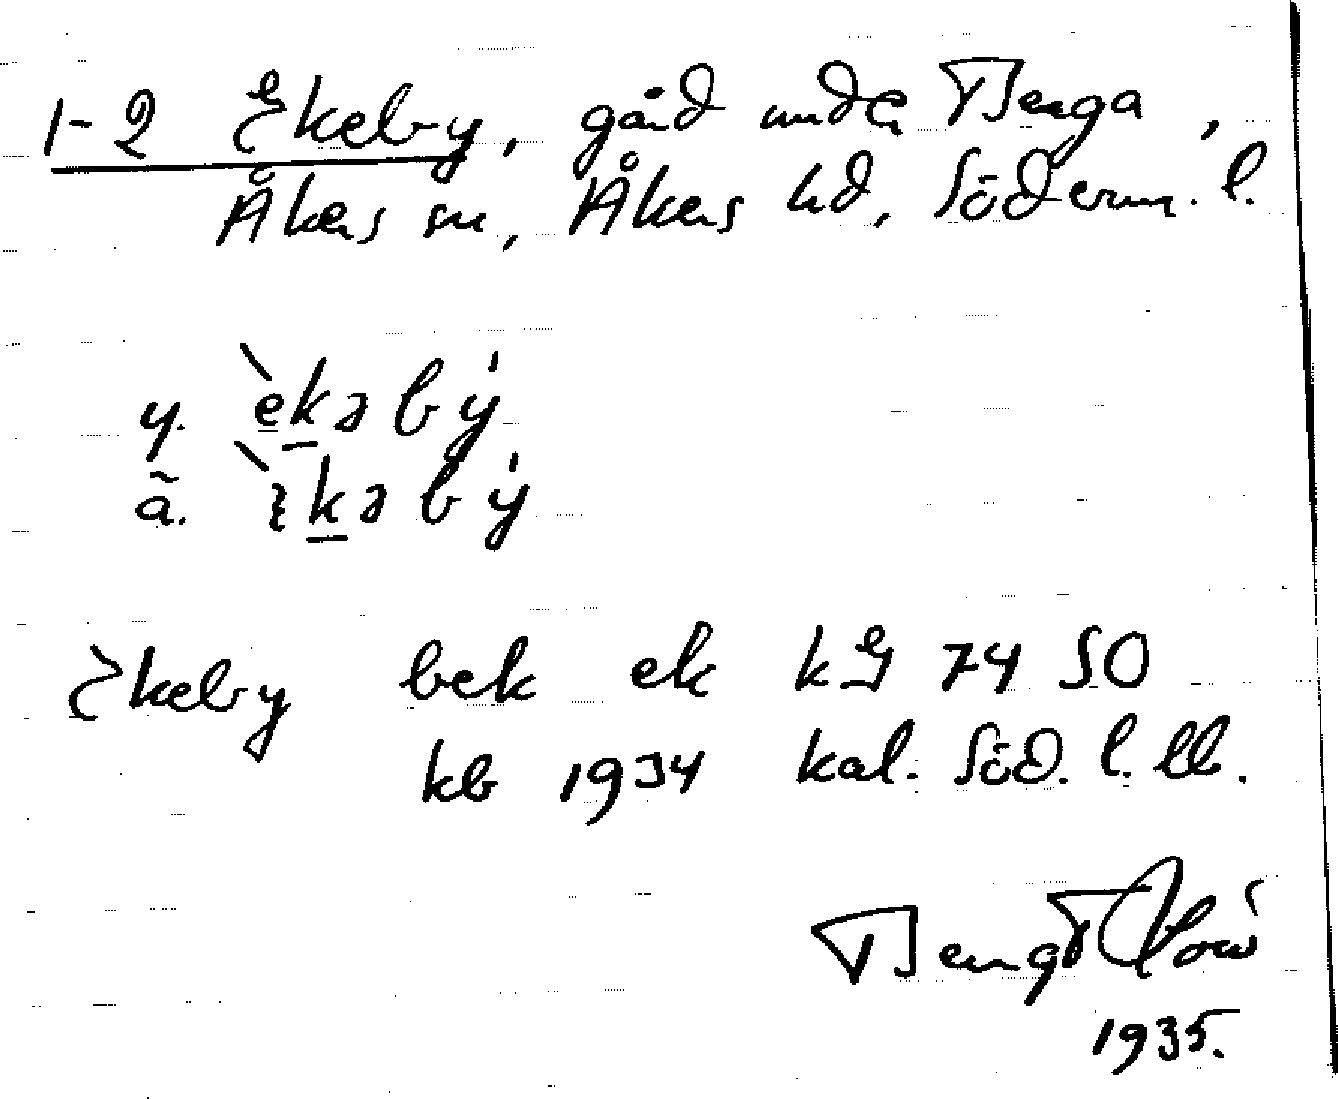 1-2 Ekeby, gård under Berga,
Åkers sn, Åkers hd, Söderm. l.
y. èkabý
ã. kabý
Ekeby bek ek kg 74 SO
kb 1934 kal. Söd. l. ll.
Bengt
1935.